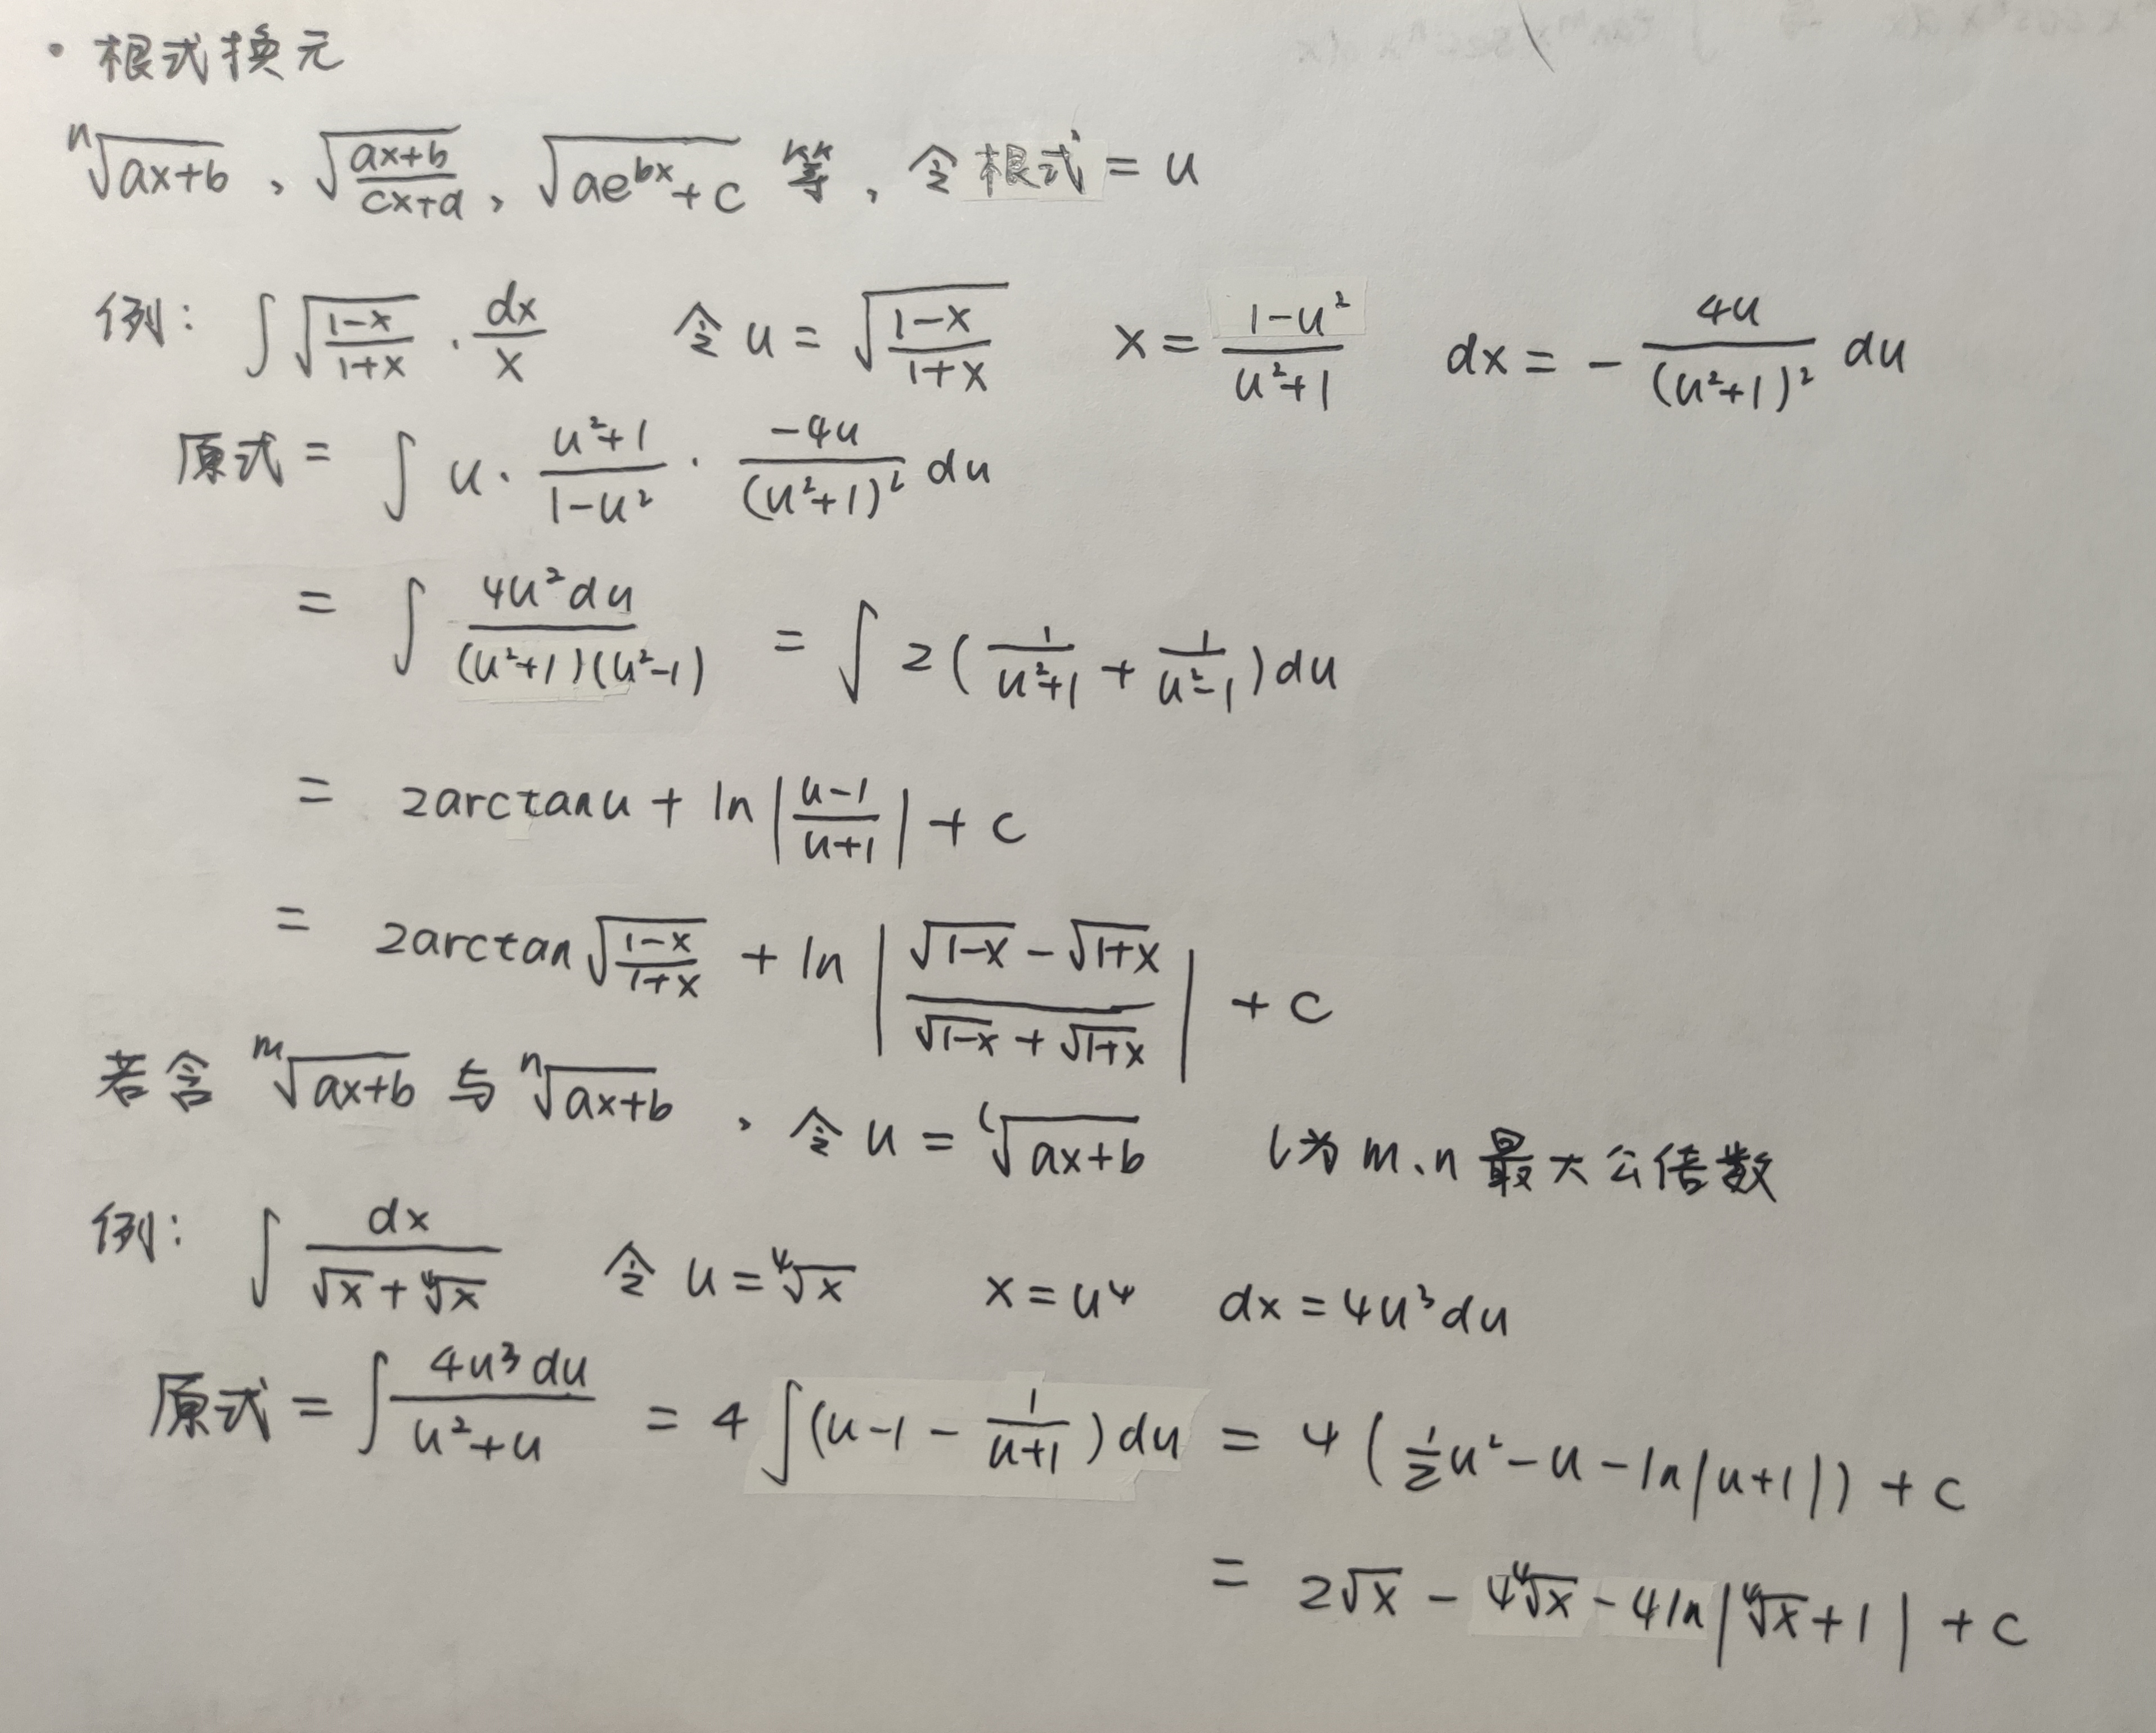 · 根式换元
ⁿ√(ax+b)、√((ax+b)/(cx+d))、√(ae^(bx)+c) 等，令根式 = u
例： ∫ √((1-x)/(1+x)) · dx/x 令 u = √((1-x)/(1+x)) x = (1-u²)/(u²+1) dx = - 4u/(u²+1)² du
原式 = ∫ u · (u²+1)/(1-u²) · (-4u)/(u²+1)² du
= ∫ 4u²du/((u²+1)(u²-1)) = ∫ 2(1/(u²+1) + 1/(u²-1))du
= 2arctanu + ln|(u-1)/(u+1)| + c
= 2arctan√((1-x)/(1+x)) + ln|(√(1-x) - √(1+x))/(√(1-x) + √(1+x))| + c
若含 ᵐ√(ax+b) 与 ⁿ√(ax+b)，令 u = ˡ√(ax+b) l为 m、n 最大公倍数
例： ∫ dx/(√x + ⁴√x) 令 u = ⁴√x x = u⁴ dx = 4u³du
原式 = ∫ 4u³du/(u²+u) = 4∫(u-1-1/(u+1))du = 4(½u²-u-ln|u+1|) + c
= 2√x - 4⁴√x - 4ln|⁴√x+1| + c